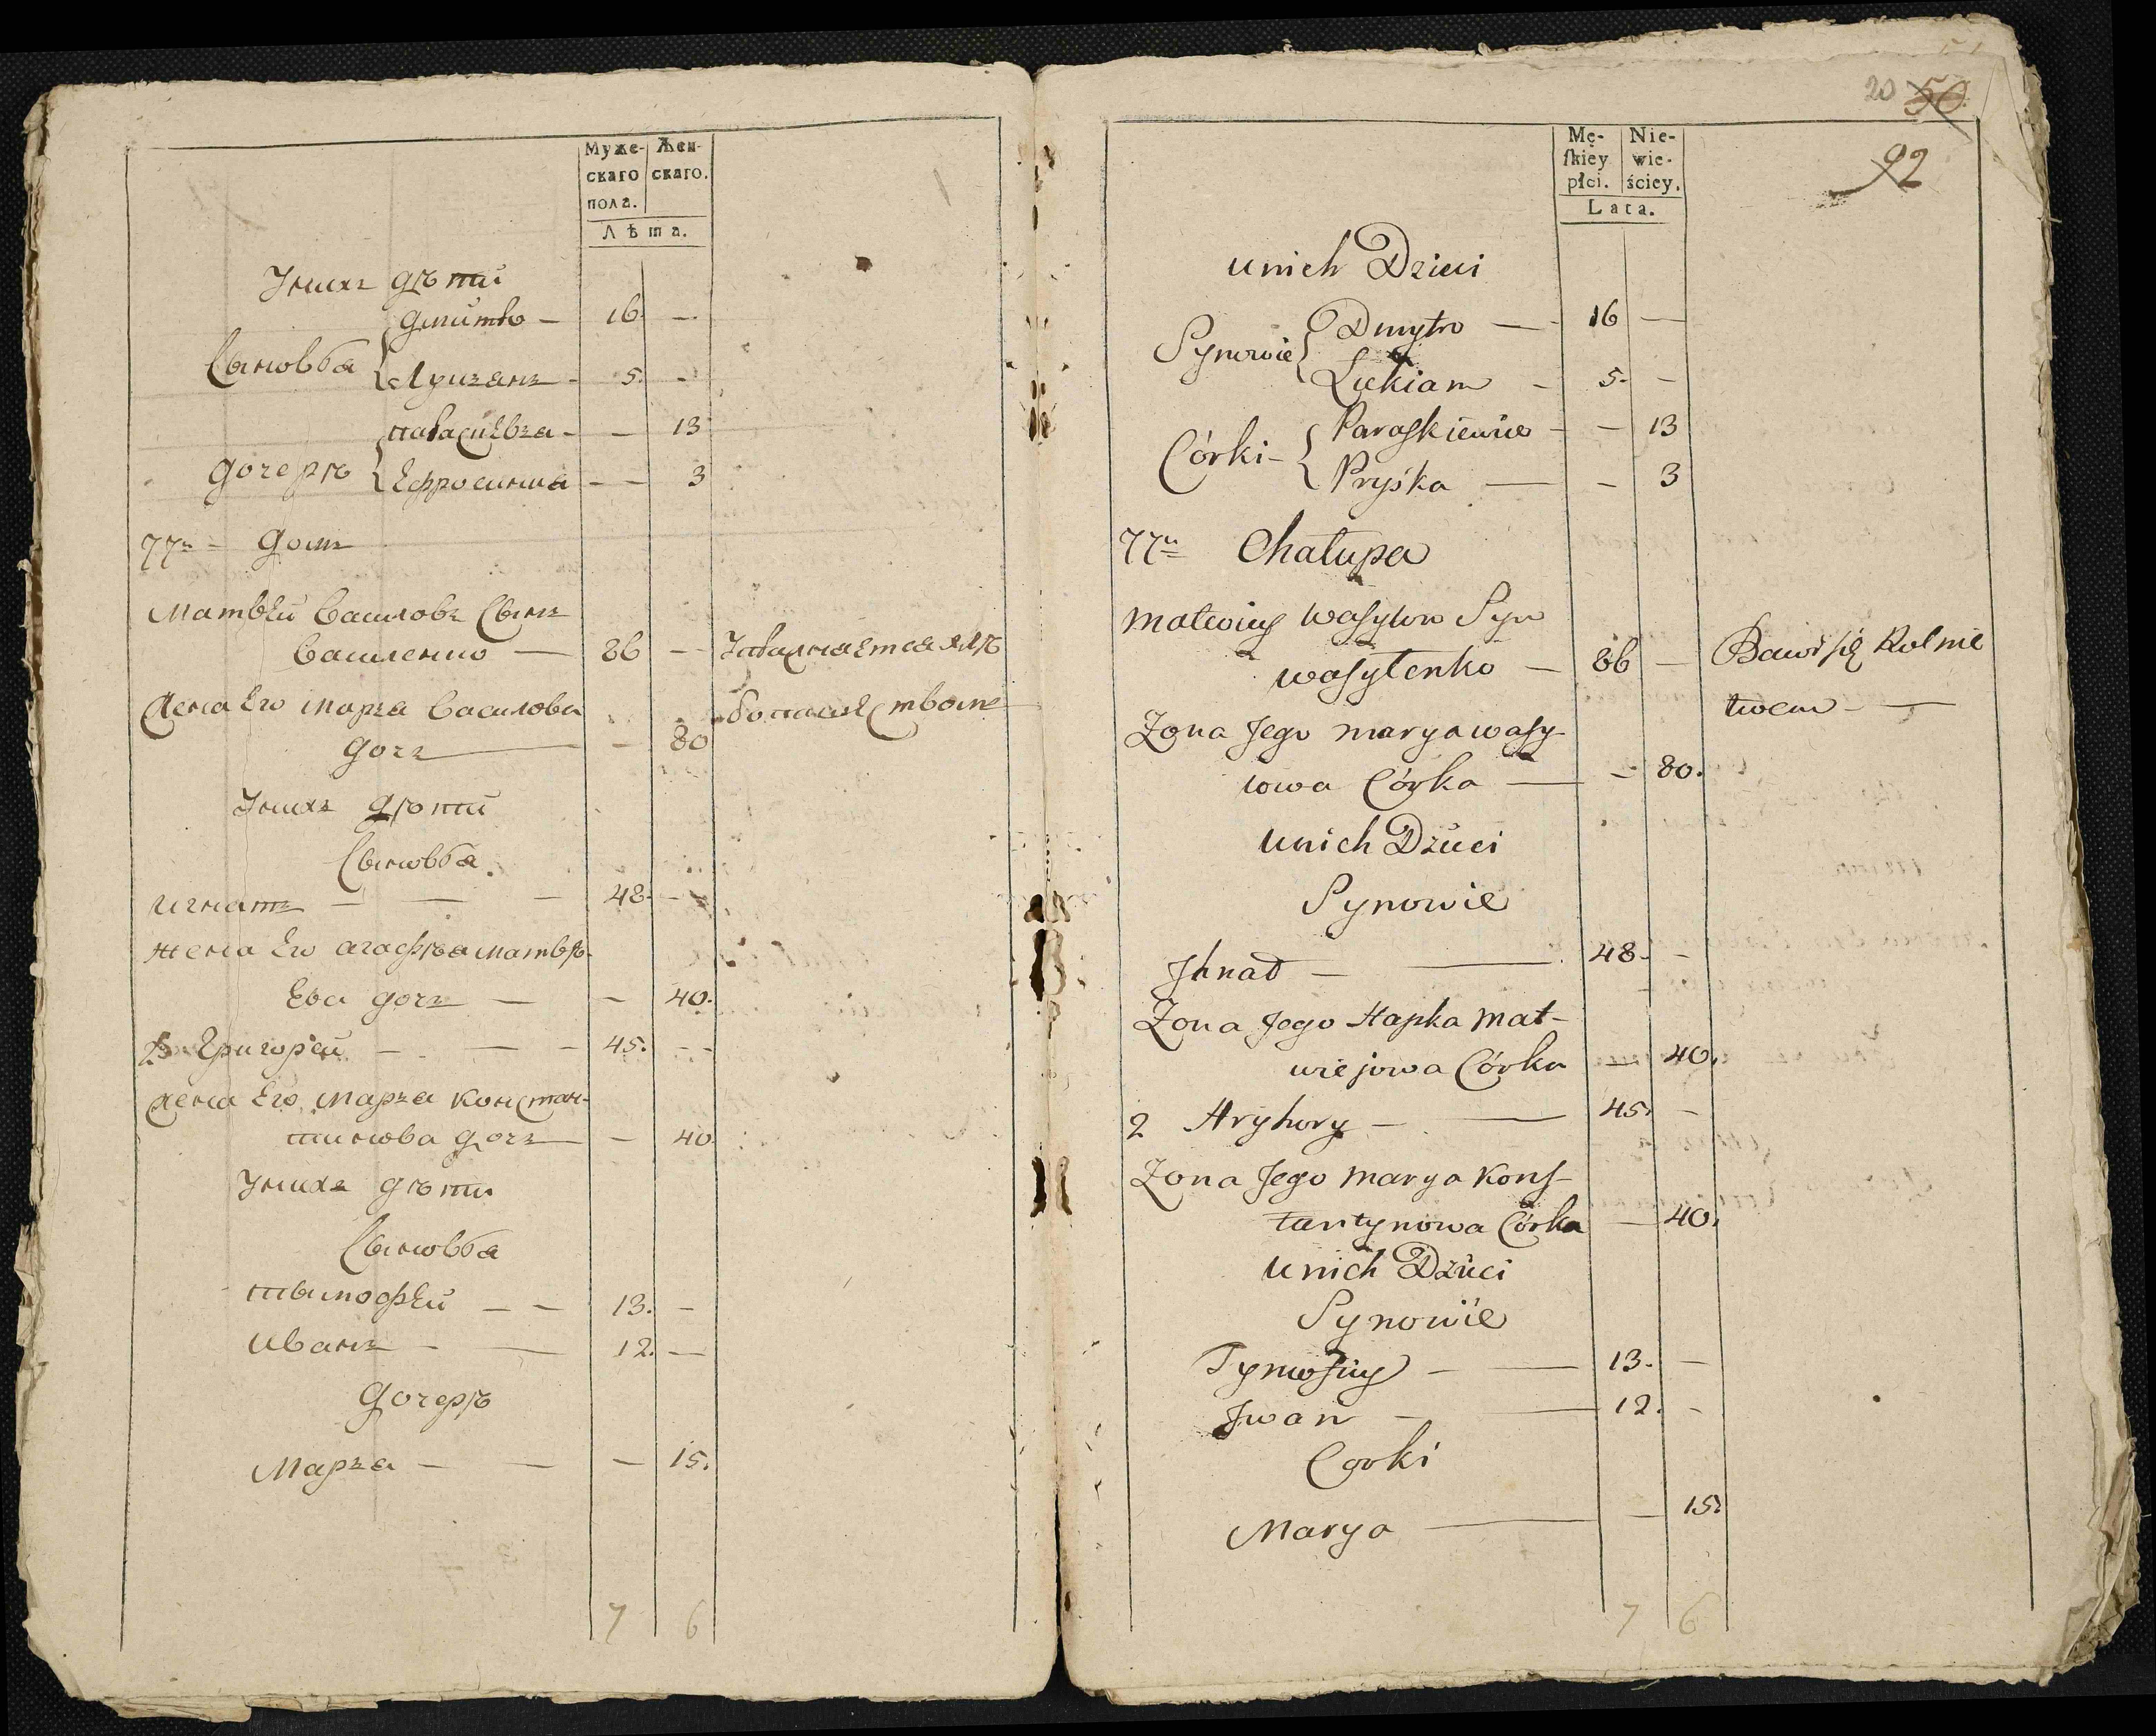 Муже-
скаго
пола.
Жен-
скаго.
Лѣта.
Унихъ дѣти
Сыновья
Дмитро — 16. —
Лукянъ - 5. -
дочерѣ
13
Ефросинья - — 3
77й - Домъ
Матвѣй Василовъ Сынъ
Василенко — 86 —
Жена Его Маръя Василова
дочъ — - 80
Унихъ дѣти
Сыновья
Игнатъ — — - 48. -
Жена Его агафья матвѣ-
Ева дочъ — - 40.
2 Григорѣй - — - 45. -
Жена Его Маръя констан-
тинова дочъ — - 40.
Унихъ дѣти
Сыновья
тымофѣй — — 13. -
Иванъ - — 12. —
дочерѣ
Маръя — — - 15.
7 6
20 50
92
Mę-
skiey
płci.
Nie-
wie-
ściey.
Lata.
unich Dzieci
Synowie
Dmytro — 16 —
Łukian - 5. -
Córki -
Paraskiewie - - 13
Pryśka — - 3
77a Chałupa
Matwiy Wasylow Syn
Wasylenko — 86 — Bawi się Rolnic
twem —
Zona Jego Marya Wasy-
lowa Córka — - 80.
unich Dzieci
Synowie
Jhnat — — 48. -
Zona Jego Hapka Mat-
wiejowa Córka — 40.
2 Hryhory - — 45. -
Zona Jego Marya Kons-
tantynowa Córka — 40.
unich Dzieci
Synowie
Tymofiy - — 13. —
Jwan - — 12. -
Corki
Marya — — 15.
7 6